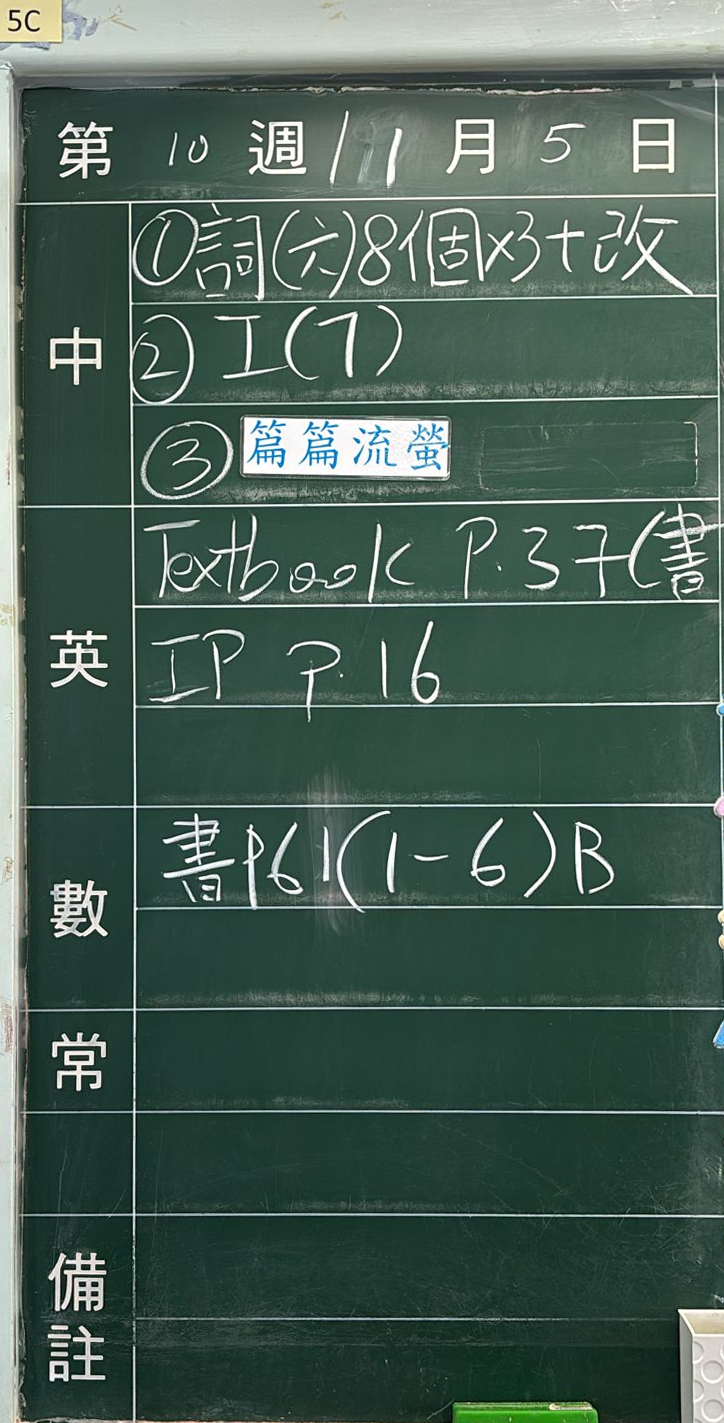 5C
第 10 週 11 月 5 日
中
①詞(六)8個x3+改
②工(7)
③篇篇流螢
英
Textbook P.37(書
IP P.16
數
書P61(1-6)B
常
備註